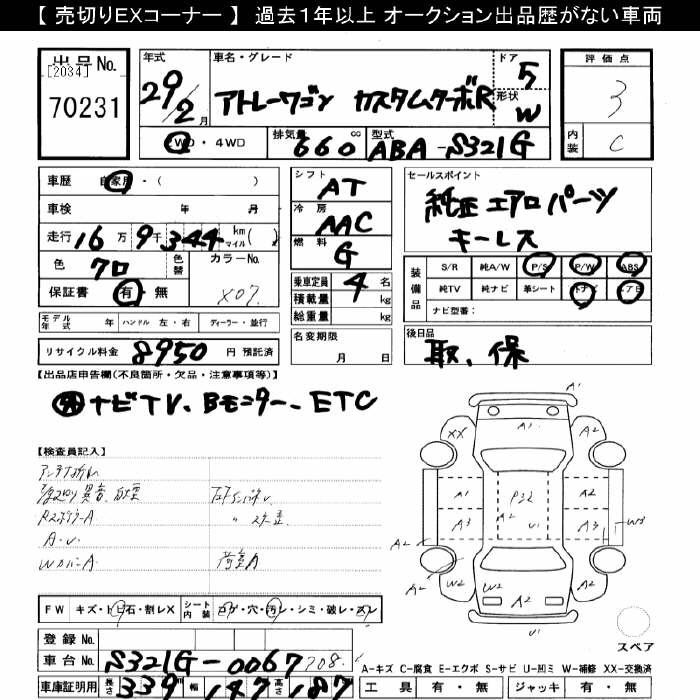 【 売切りEXコーナー 】 過去１年以上 オークション出品歴がない車両
出品No.
[2034]
70231
年式
29/2月
車名・グレード
アトレーワゴン カスタムターボR
ドア
5
形状
W
評価点
3
内装
C
2WD・4WD
排気量
660 cc
型式
ABA-S321G
車歴 自家用・( )
車検 年 月
走行 16万9千344 km マイル( )
色 クロ
色替
カラーNo.
X07
保証書 有・無
シフト
AT
冷房
AAC
燃料
G
乗車定員 4 名
積載量 kg
総重量 kg
セールスポイント
純正エアロパーツ
キーレス
装備品
S/R 純A/W P/S P/W ABS
純TV 純ナビ 革シート エアB
ナビ型番：
モデル年式 年 ハンドル 左・右 ディーラー・並行
リサイクル料金 8950 円 預託済
名変期限
月 日
後日品
取、保
【出品店申告欄(不良箇所・欠品・注意事項等)】
ナビTV、Bモニター、ETC
【検査員記入】
アンテナ折れ
A・U
荷室A
FW キズ・トビ石・割レX シート内装 コゲ・穴・汚レ・シミ・破レ・スレ
登録No.
車台No. S321G-0067708
車庫証明用 長さ 339 幅 147 高さ 187
A1
XX
A1
A1
P32
A2
A2
A3
A2
U1
A3
W3
A2
A2
W2
W2
A2
W2
U1
スペア
A-キズ C-腐食 E-エクボ S-サビ U-凹ミ W-補修 XX-交換済
工具 有・無 ジャッキ 有・無